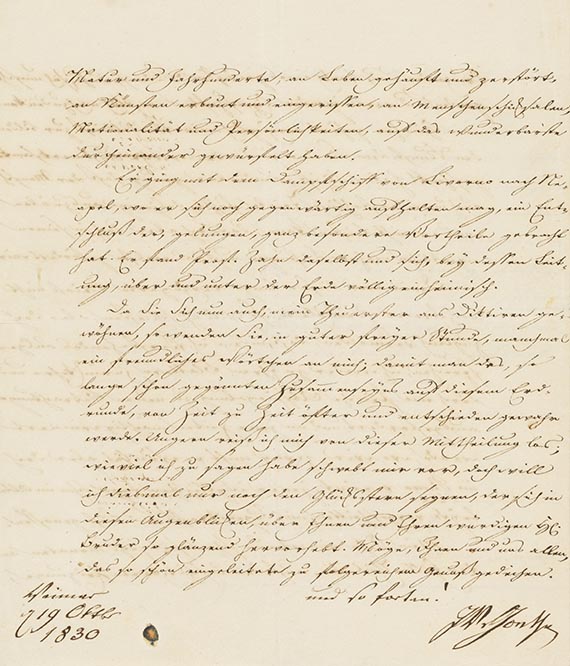 Natur und Jahrhunderte, an Leben gehäuft und zerstört,
an Künsten erbaut und eingerissen, an Menschenschicksalen,
Nationalität und Persönlichkeiten, aufs das wunderbarste
durcheinander gewürfelt haben.
Er ging mit dem Dampfschiff von Livorno nach Ne-
apel, wo er sich noch gegenwärtig aufhalten mag, ein Ent-
schluß der, gelungen, ganz besondere Vortheile gebracht
hat. Er fand Prof. Zahn daselbst und sich, bey dessen Leit-
ung, über und unter der Erde völlig einheimisch.
Da Sie Sich nun auch, mein Theuerster ans Dictiren ge-
wöhnen, so wenden Sie, in guter freyer Stunde, manchmal
ein freundliches Wörtchen an mich, damit man des, so
lange schon gegönnten Zusammenseyns auf diesem Erd-
runde, von Zeit zu Zeit öfter und entschieden gewahr
werde. Ungern reiße ich mich von dieser Mittheilung los,
wieviel ich zu sagen habe schwebt mir vor, doch will
ich dießmal nur noch den Glückstern segnen, der sich in
diesen Augenblicken über Ihnen und Ihren würdigen H.
Bruder so glänzend hervorhebt. Möge, Ihnen und uns allen,
das so schön eingeleitete zu folgereichem Genuß gedeihen.
und so fortan!
Weimar
19 Oktbr
1830
JWvGoethe